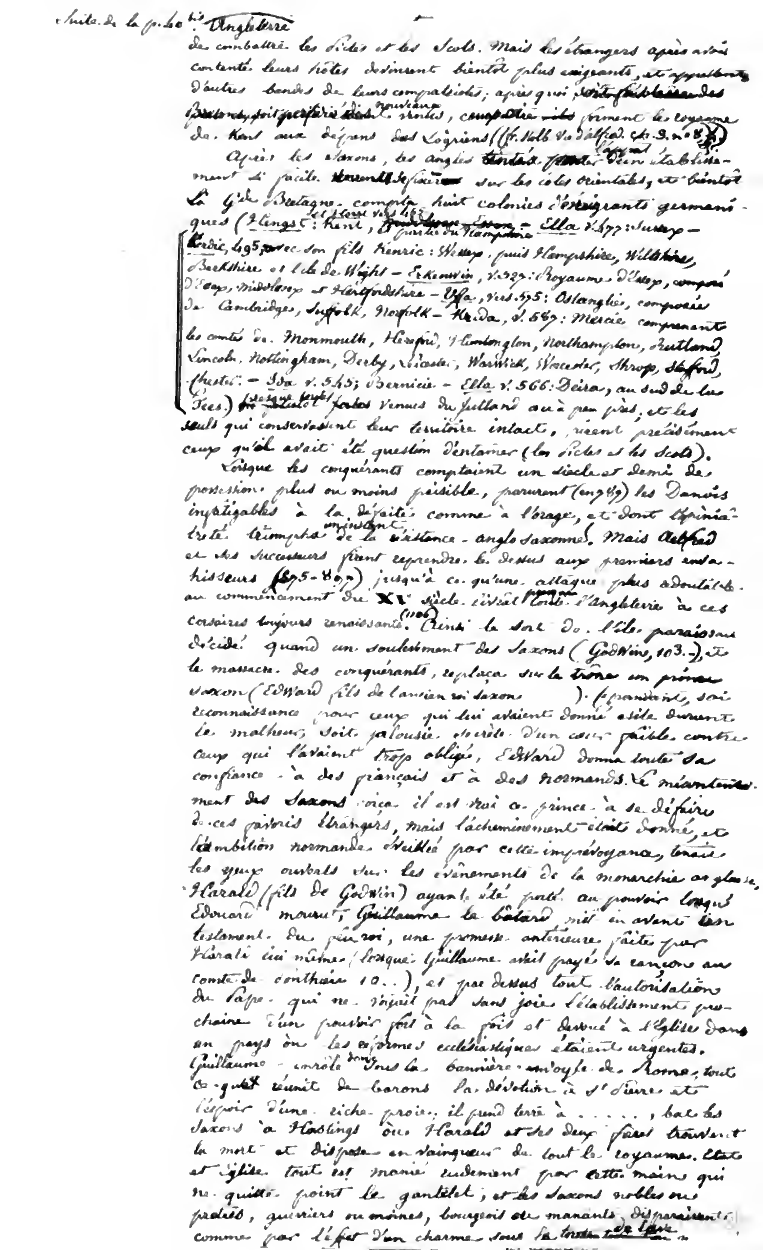 Suite de la p. 40 bis. Angleterre
de combattre les Pictes et les Scots. Mais les étrangers après avoir
contenté leurs hôtes devinrent bientôt plus exigeants, et appellent
d'autres bandes de leurs compatriotes; après quoi
nouveaux forment le royaume
de Kent aux dépens des Logriens
Après les Saxons, les angles d'un établisse-
ment si facile sur les côtes orientales, et bientôt
la Gde Bretagne compta huit colonies d'émigrants germani-
ques (Hengst: Kent, Ella v. 477: Sussex -
Kerdic, 495, avec son fils Kenric: Wessex, puis Hampshire, Wiltshire,
Berkshire et l'île de Wight - Erkenwin, v. 527: Royaume d'Essex, composé
d'Essex, Middlesex et Hertfordshire - Uffa, vers 575: Ostanglie, composée
de Cambridge, Suffolk, Norfolk - Krida, v. 587: Mercie comprenant
les comtés de Monmouth, Hereford, Huntington, Northampton, Rutland,
Lincoln, Nottingham, Derby, Leicester, Warwick, Worcester, Shrop, Stafford,
Chester. - Ida v. 545; Bernicie - Ella v. 566: Deira, au sud de la
Tees.) presque toutes venues du Jutland ou à peu près; et les
seuls qui conservassent leur territoire intact, furent précisément
ceux qu'il avait été question d'entamer (les Pictes et les Scots).
Lorsque les conquérants comptaient un siècle et demi de
possession plus ou moins paisible, parurent (en 789) les Danois
infatigables à la défaite comme à l'orage, et dont l'opiniâ-
treté triompha un instant de la résistance anglo saxonne. Mais Aelfred
et ses successeurs firent reprendre le dessus aux premiers enva-
hisseurs jusqu'à ce qu'une attaque plus redoutable
au commencement du XIe siècle livrât presque toute l'Angleterre à ces
corsaires toujours renaissants. Ainsi le sort de l'île paraissait
décidé quand un soulèvement des Saxons (Godwin, 103.), et
le massacre des conquérants, replaça sur le trône un prince
saxon (Edward fils de l'ancien roi saxon ). Cependant, soit
reconnaissance pour ceux qui lui avaient donné asile durant
le malheur, soit jalousie secrète d'un cœur faible contre
ceux qui l'avaient trop obligé, Edward donna toute sa
confiance à des français et à des normands. Le mécontente-
ment des Saxons força il est vrai ce prince à se défaire
de ces favoris étrangers, mais l'acheminement était donné, et
l'ambition normande éveillée par cette imprévoyance, tenait
les yeux ouverts sur les événements de la monarchie anglaise.
Harald (fils de Godwin) ayant été porté au pouvoir lorsque
Edouard mourut, Guillaume le bâtard mit en avant un
testament du feu roi, une promesse antérieure faite par
Harald lui même (lorsque Guillaume avait payé sa rançon au
comte de Ponthieu 10..), et par dessus tout l'autorisation
du Pape qui ne voyait pas sans joie l'établissement pro-
chain d'un pouvoir fort à la fois et dévoué à l'Eglise dans
un pays où les réformes ecclésiastiques étaient urgentes.
Guillaume enrôle donc sous la bannière envoyée de Rome, tout
ce que réunit de barons la dévotion à St Pierre et
l'espoir d'une riche proie; il prend terre à ....., bat les
Saxons à Hastings où Harald et ses deux frères trouvent
la mort et dispose en vainqueur de tout le royaume. Etat
et église tout est manié rudement par cette main qui
ne quitte point le gantelet; et les Saxons nobles ou
prêtres, guerriers ou moines, bourgeois ou manants disparaissent
comme par l'effet d'un charme sous la